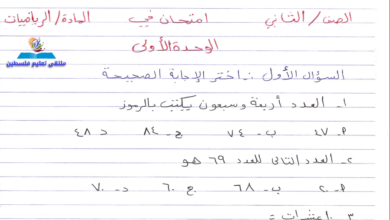 الصف/ الثاني امتحان في المادة/ الرياضيات
الوحدة الأولى
ملتقى تعليم فلسطين
السؤال الأول :- اختر الإجابة الصحيحة
١- العدد أربعة وسبعون يكتب بالرموز
٤٧ ب- ٧٤ ج- ٨٤ د ٤٨
٢- العدد التالي للعدد ٦٩ هو
ب- ٦٨ ج ٦٠ د- ٧٠